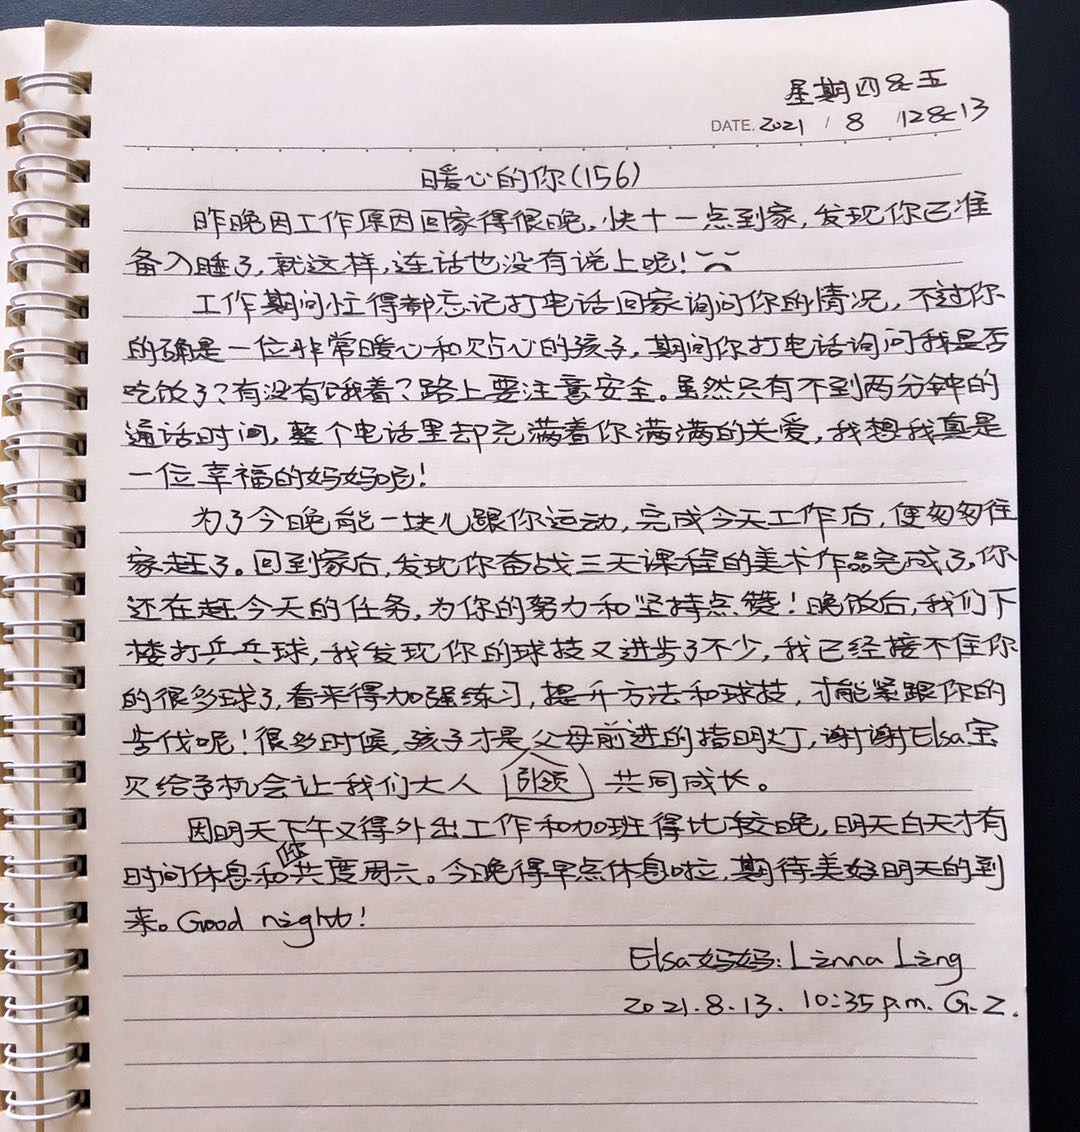 星期四&五
DATE. 2021 / 8 /12&13
暖心的你(156)
昨晚因工作原因回家得很晚,快十一点到家,发现你已准
备入睡了,就这样,连话也没有说上呢!
工作期间忙得都忘记打电话回家询问你的情况,不过你
的确是一位非常暖心和贴心的孩子,期间你打电话询问我是否
吃饭了?有没有饿着?路上要注意安全。虽然只有不到两分钟的
通话时间,整个电话里却充满着你满满的关爱,我想我真是
一位幸福的妈妈呢!
为了今晚能一块儿跟你运动,完成今天工作后,便匆匆往
家赶了。回到家后,发现你奋战三天课程的美术作品完成了,你
还在赶今天的任务,为你的努力和坚持点赞!晚饭后,我们下
楼打乒乓球,我发现你的球技又进步了不少,我已经接不住你
的很多球了,看来得加强练习,提升方法和球技,才能紧跟你的
步伐呢!很多时候,孩子才是父母前进的指明灯,谢谢Elsa宝
贝给予机会让我们大人引领共同成长。
因明天下午又得外出工作和加班得比较晚,明天白天才有
时间休息和你共度周六。今晚得早点休息啦,期待美好明天的到
来。Good night!
Elsa妈妈:Linna Ling
2021.8.13. 10:35 p.m. G.Z.